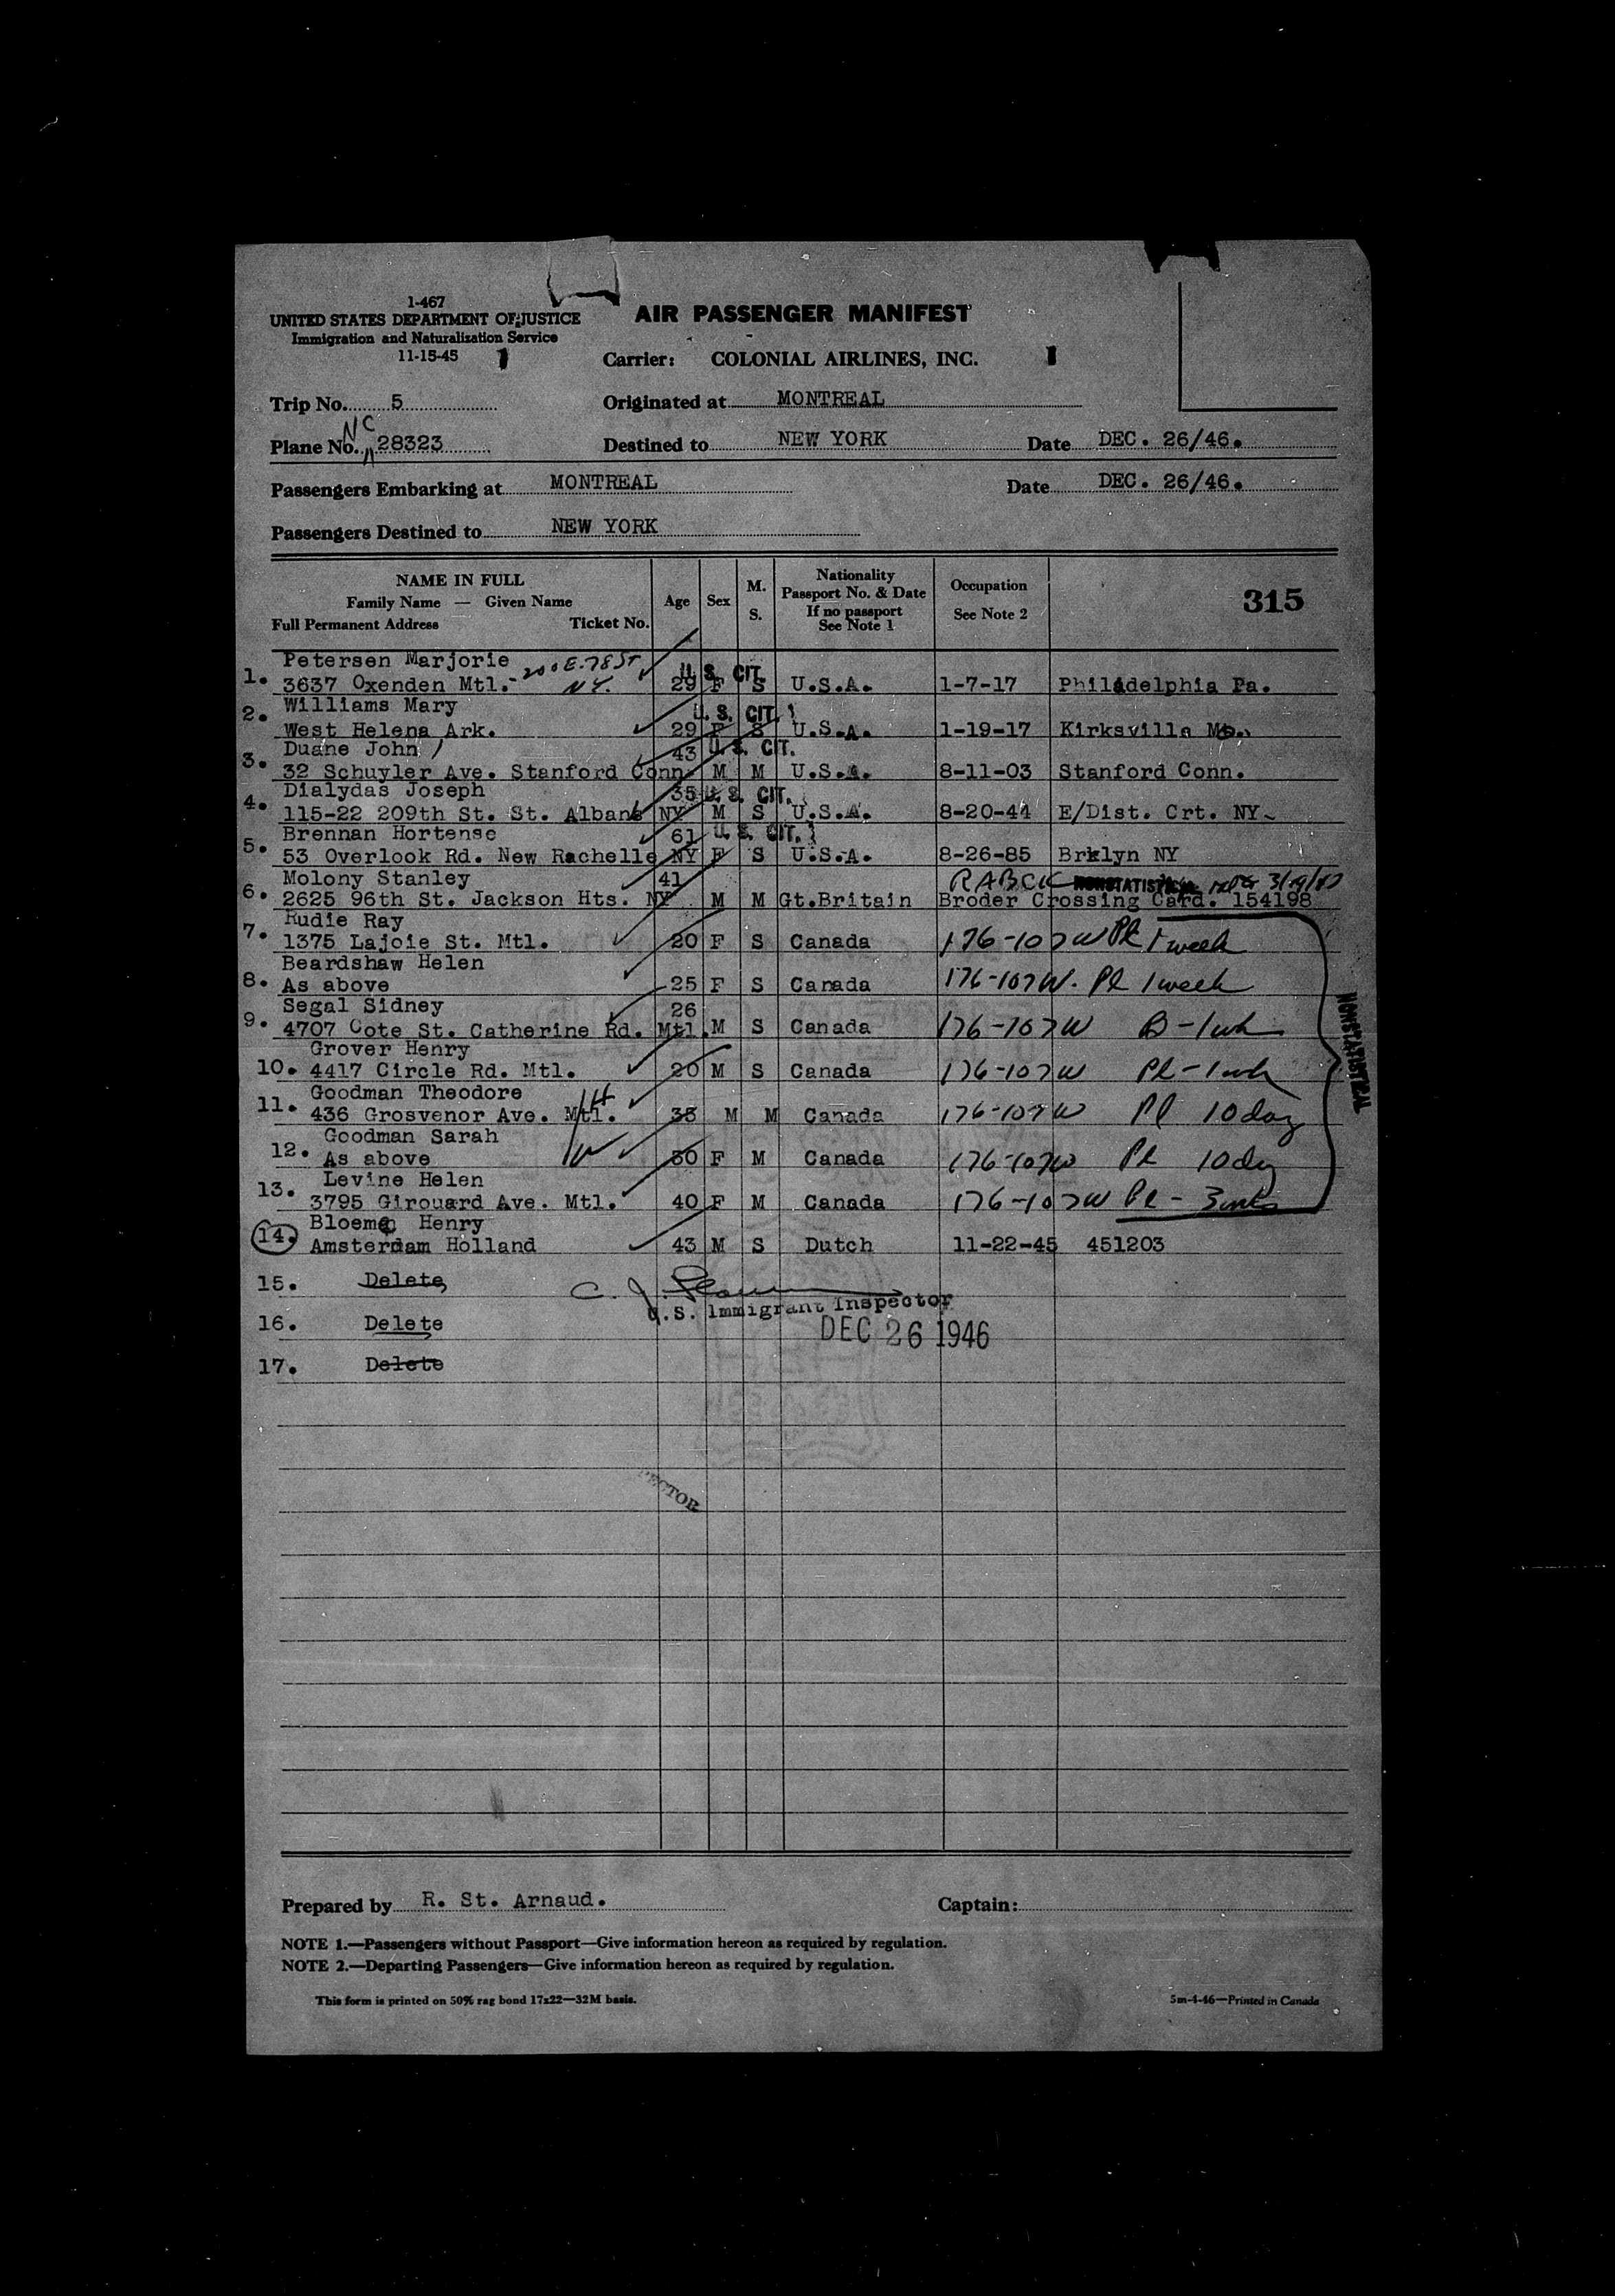 1-467
UNITED STATES DEPARTMENT OF JUSTICE
Immigration and Naturalization Service
11-15-45
AIR PASSENGER MANIFEST
Carrier: COLONIAL AIRLINES, INC.
Trip No. 5
Originated at MONTREAL
Plane No. NC 28323
Destined to NEW YORK
Date DEC. 26/46.
Passengers Embarking at MONTREAL
Date DEC. 26/46.
Passengers Destined to NEW YORK
NAME IN FULL
Family Name — Given Name
Full Permanent Address Ticket No.
Age
Sex
M.
S.
Nationality
Passport No. & Date
If no passport
See Note 1
Occupation
See Note 2
315
Petersen Marjorie 200 E. 78 ST
1. 3637 Oxenden Mtl. N.Y. 29 F S U.S. CIT. U.S.A. 1-7-17 Philadelphia Pa.
Williams Mary
2. West Helena Ark. 29 F S U.S. CIT. U.S.A. 1-19-17 Kirksville Mo.
Duane John 43 U.S. CIT.
3. 32 Schuyler Ave. Stanford Conn. M M U.S.A. 8-11-03 Stanford Conn.
Dialydas Joseph 35 U.S. CIT.
4. 115-22 209th St. St. Albans NY M S U.S.A. 8-20-44 E/Dist. Crt. NY
Brennan Hortense 61 U.S. CIT.
5. 53 Overlook Rd. New Rachelle NY F S U.S.A. 8-26-85 Brklyn NY
Molony Stanley 41 RABCK NONSTATISTICAL
6. 2625 96th St. Jackson Hts. NY M M Gt.Britain Broder Crossing Card. 154198
Rudie Ray
7. 1375 Lajoie St. Mtl. 20 F S Canada 176-107W Pl 1 week
Beardshaw Helen
8. As above 25 F S Canada 176-107W. Pl 1 week
Segal Sidney 26
9. 4707 Cote St. Catherine Rd. Mtl. M S Canada 176-107W B-1wk
Grover Henry
10. 4417 Circle Rd. Mtl. 20 M S Canada 176-107W Pl-1wk
Goodman Theodore H
11. 436 Grosvenor Ave. Mtl. 35 M M Canada 176-107W Pl 10 day
Goodman Sarah
12. As above W 30 F M Canada 176-107W Pl 10 dy
Levine Helen
13. 3795 Girouard Ave. Mtl. 40 F M Canada 176-107W Pl - 3 wks
NONSTATISTICAL
Bloemen Henry
14. Amsterdam Holland 43 M S Dutch 11-22-45 451203
15. Delete
U.S. Immigrant Inspector
16. Delete
DEC 26 1946
17. Delete
PECTOR
Prepared by R. St. Arnaud.
Captain:
NOTE 1.—Passengers without Passport—Give information hereon as required by regulation.
NOTE 2.—Departing Passengers—Give information hereon as required by regulation.
This form is printed on 50% rag bond 17x22—32M basis.
5m-4-46—Printed in Canada